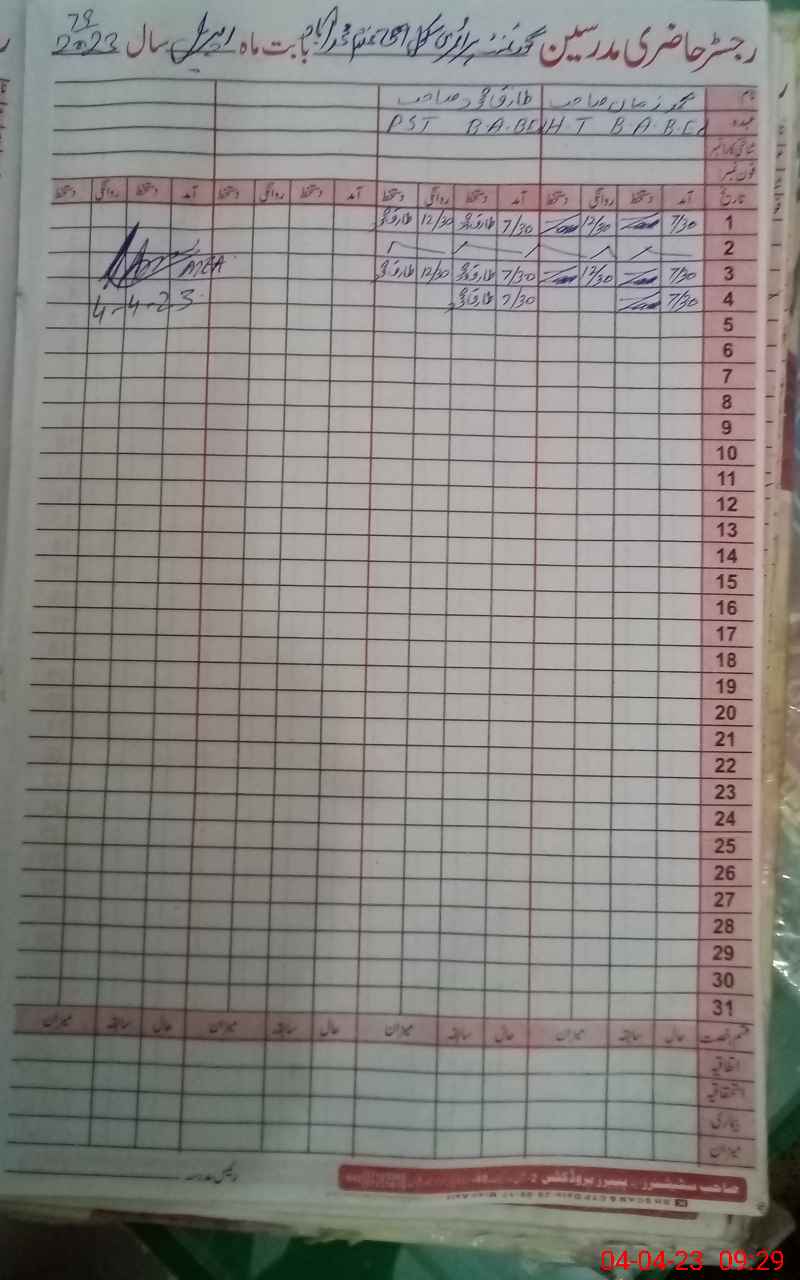 79
رجسٹر حاضری مدرسین گورنمنٹ پرائمری سکول بابت ماہ اپریل سال 2023
نام محمد زمان صاحب طارق محمود صاحب
عہدہ H.T B.A.B.Ed PST B.A.BEd
شناختی کارڈ نمبر
فون نمبر
تاریخ آمد دستخط روانگی دستخط آمد دستخط روانگی دستخط آمد دستخط روانگی دستخط آمد دستخط روانگی دستخط
1 7/30 12/30 7/30 طارق محمود 12/30 طارق محمود
2
3 7/30 12/30 7/30 طارق محمود 12/30 طارق محمود
4 7/30 7/30 طارق محمود 4-4-23
5
6
7
8
9
10
11
12
13
14
15
16
17
18
19
20
21
22
23
24
25
26
27
28
29
30
31
قسم رخصت حال سابقہ میزان حال سابقہ میزان حال سابقہ میزان حال سابقہ میزان
اتفاقیہ
استحقاقیہ
بیماری
میزان
رئیس مدرسہ
صاحب سٹیشنرز پیپرز پروڈکشن
04-04-23 09:29